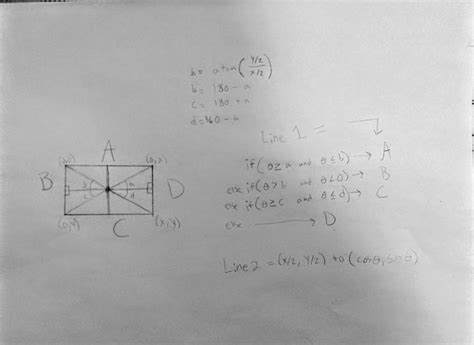 a = atan(
y/2
x/2
)
b = 180 - a
c = 180 + a
d = 360 - a
Line 1 =
if(θ ≥ a and θ ≤ b) → A
else if(θ > b and θ < c) → B
else if(θ ≥ c and θ ≤ d) → C
else → D
Line 2 = (x/2, y/2) to (cosθ, sinθ)
A
B
D
C
(0,y)
(x,y)